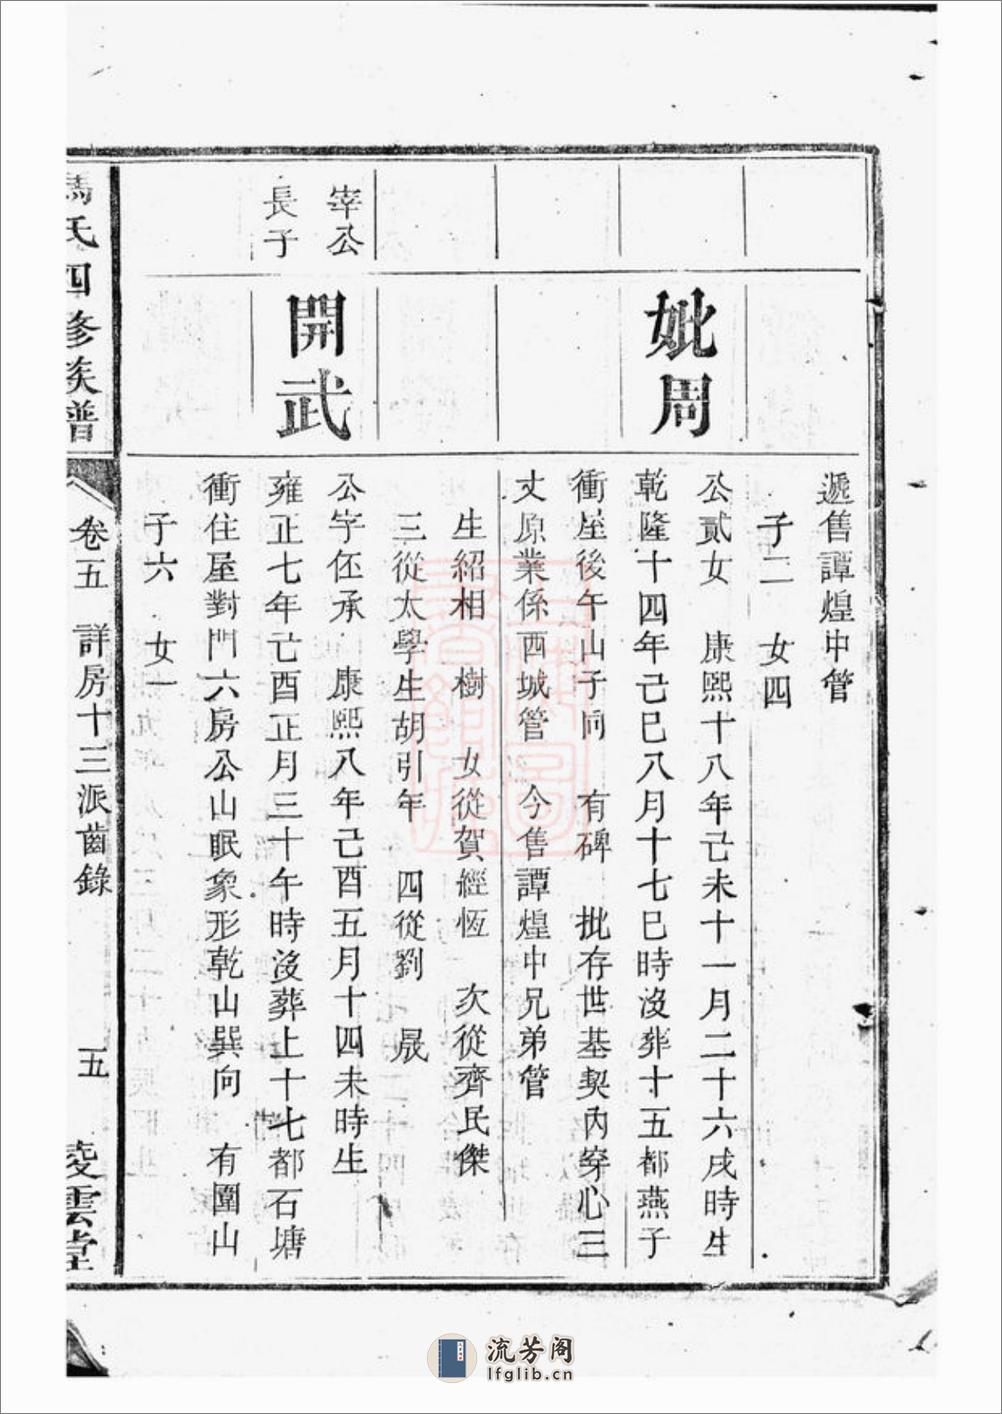 遞售譚煌中管
子二　女四
妣周
公貳女　康熙十八年己未十一月二十六戌時生
乾隆十四年己巳八月十七巳時沒葬十五都燕子
衝屋後午山子向　有碑　批存世基契內穿心三
丈原業係西城管　今售譚煌中兄弟管
生紹相　樹　女從賀經恆　次從齊民傑
三從太學生胡引年　四從劉　晸
宰公
長子
開武
公字伾承　康熙八年己酉五月十四未時生
雍正七年己酉正月三十午時沒葬上十七都石塘
衝住屋對門六房公山眠象形乾山巽向　有圍山
子六　女一
馮氏四修族譜
卷五　詳房十三派齒錄
五
淩雲堂
流芳阁
lfglib.cn